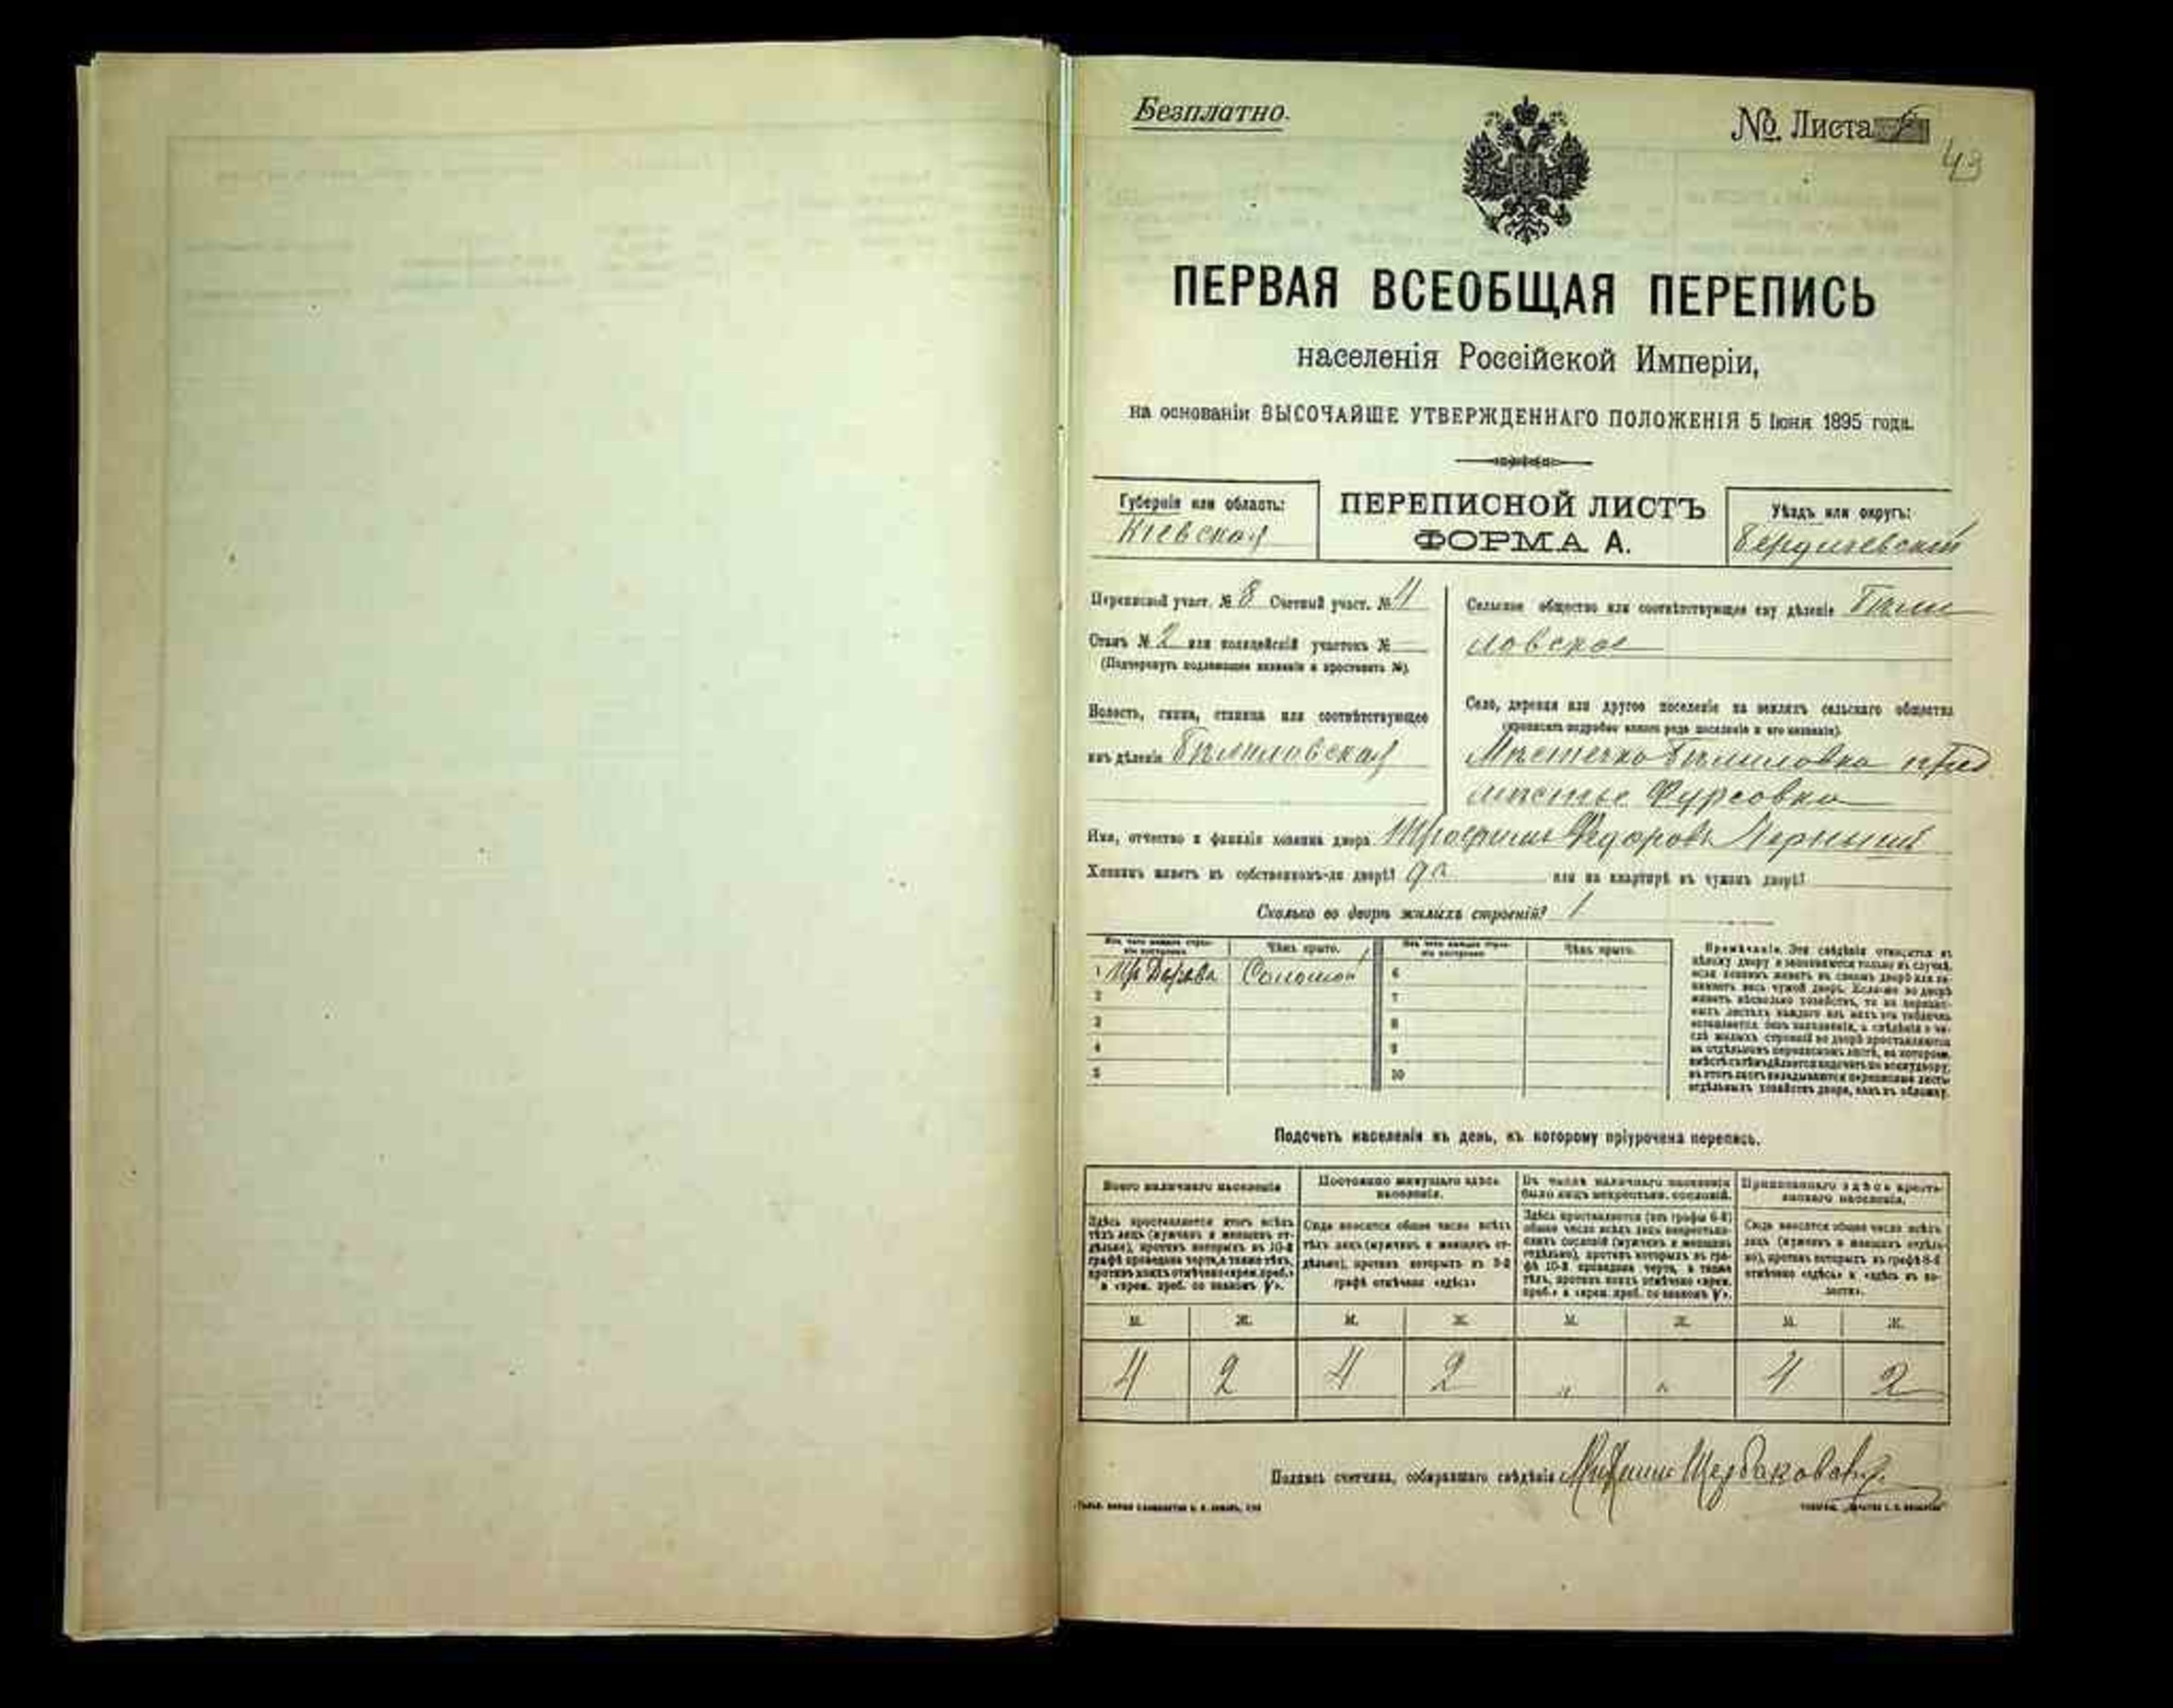 Безплатно.
№ Листа
43
ПЕРВАЯ ВСЕОБЩАЯ ПЕРЕПИСЬ
населенія Россійской Имперіи,
на основаніи ВЫСОЧАЙШЕ УТВЕРЖДЕННАГО ПОЛОЖЕНІЯ 5 Іюня 1895 года.
Губернія или область:
Кіевская
ПЕРЕПИСНОЙ ЛИСТЪ
ФОРМА А.
Уѣздъ или округъ:
Бердичевскій
Переписной участ. № 8 Счетный участ. № 4
Станъ № 2 или полицейскій участокъ №
(Подчеркнуть подлежащее названіе и проставить №).
Волость, гмина, станица или соотвѣтствующее
имъ дѣленіе Бѣлиловская
Сельское общество или соотвѣтствующее ему дѣленіе Бѣли
ловское
Село, деревня или другое поселеніе на земляхъ сельскаго общества
(прописать подробно какого рода поселеніе и его названіе).
Мѣстечко Бѣлиловка пред
мѣстье Фурсовка
Имя, отчество и фамилія хозяина двора Трофимъ Федоровъ Черный
Хозяинъ живетъ въ собственномъ-ли дворѣ? да или на квартирѣ въ чужомъ дворѣ?
Сколько во дворѣ жилыхъ строеній? 1
Изъ чего каждое строеніе построено
Чѣмъ крыто.
Изъ чего каждое строеніе построено
Чѣмъ крыто.
1 Дерева Соломой 6
2 7
3 8
4 9
5 10
Примѣчаніе. Эти свѣдѣнія относятся къ
цѣлому двору и заполняются только въ случаѣ,
если хозяинъ живетъ въ своемъ дворѣ или за-
нимаетъ весь чужой дворъ. Если-же во дворѣ
живетъ нѣсколько хозяйствъ, то на перепис-
ныхъ листахъ каждаго изъ нихъ эта табличка
оставляется безъ заполненія, а свѣдѣнія о чи-
слѣ жилыхъ строеній во дворѣ проставляются
на отдѣльномъ переписномъ листѣ, на которомъ
вмѣстѣ съ тѣмъ дѣлается подсчетъ по всему двору;
въ этотъ листъ вкладываются переписные листы
отдѣльныхъ хозяйствъ двора, какъ въ обложку.
Подсчетъ населенія въ день, къ которому пріурочена перепись.
Всего наличнаго населенія
Постоянно живущаго здѣсь
населенія.
Въ числѣ наличнаго населенія
было лицъ некрестьян. сословій.
Приписаннаго здѣсь кресть-
янскаго населенія.
Здѣсь проставляется итогъ всѣхъ
тѣхъ лицъ (мужчинъ и женщинъ от-
дѣльно), противъ которыхъ въ 10-й
графѣ проведена черта, а также тѣхъ,
противъ коихъ отмѣчено «врем. преб.»
и «врем. преб. со знакомъ V».
Сюда вносится общее число всѣхъ
тѣхъ лицъ (мужчинъ и женщинъ от-
дѣльно), противъ которыхъ въ 9-й
графѣ отмѣчено «здѣсь»
Здѣсь проставляется (изъ графы 6-й)
общее число всѣхъ лицъ некрестьян-
скихъ сословій (мужчинъ и женщинъ
отдѣльно), противъ которыхъ въ гра-
фѣ 10-й проведена черта, а также
тѣхъ, противъ коихъ отмѣчено «врем.
преб.» и «врем. преб. со знакомъ V».
Сюда вносится общее число всѣхъ
лицъ (мужчинъ и женщинъ отдѣль-
но), противъ которыхъ въ графѣ 8-й
отмѣчено «здѣсь» и «здѣсь въ во-
лости».
М. Ж. М. Ж. М. Ж. М. Ж.
4 2 4 2 " " 4 2
Подпись счетчика, собиравшаго свѣдѣнія